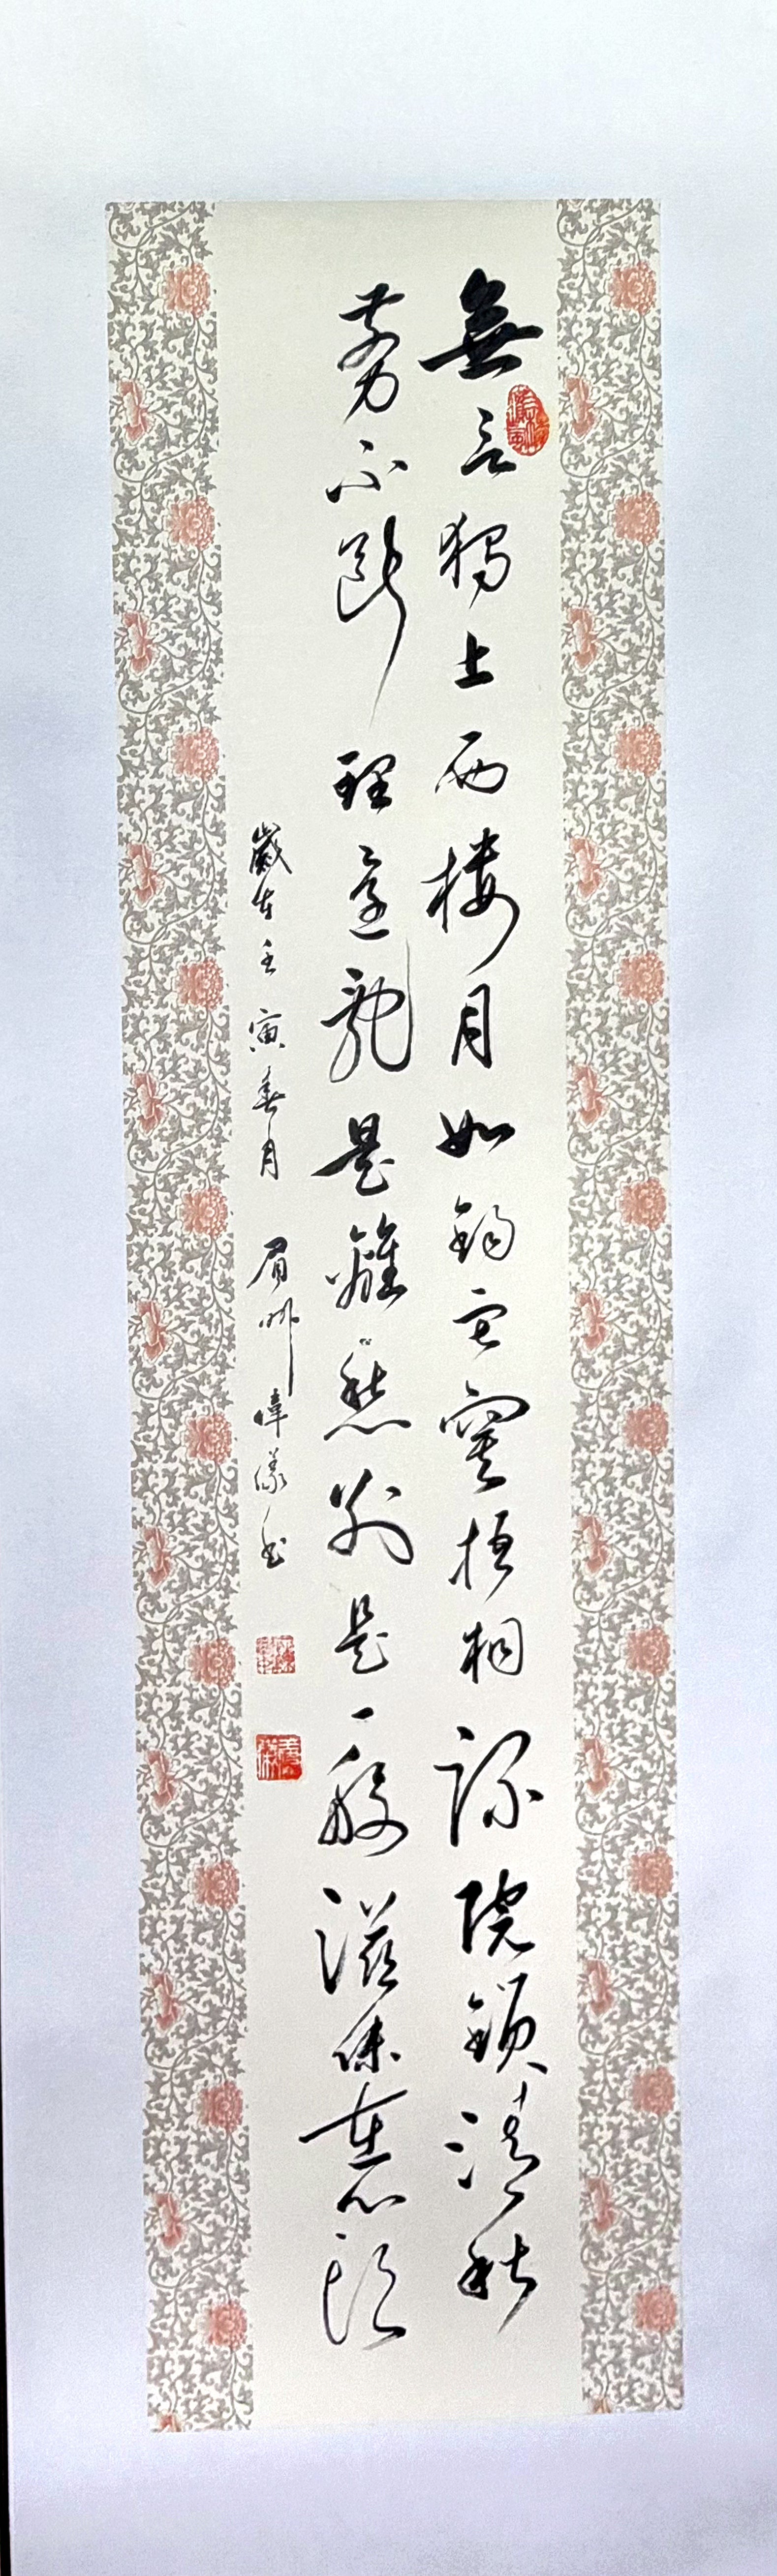 無言獨上西樓月如鈎寂寞梧桐深院鎖清秋
剪不斷理還亂是離愁別是一般滋味在心頭
歲在壬寅春月 眉州偉書